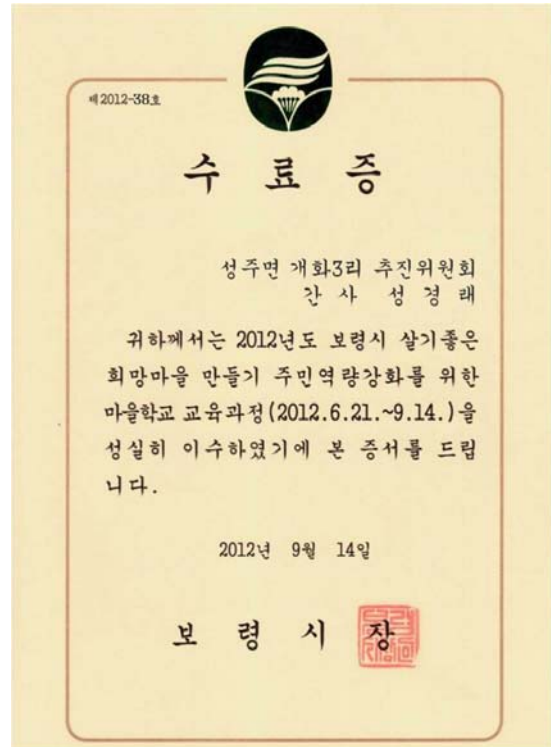 제2012-38호
수 료 증
성주면 개화3리 추진위원회
간 사 성 경 래
귀하께서는 2012년도 보령시 살기좋은
희망마을 만들기 주민역량강화를 위한
마을학교 교육과정(2012.6.21.~9.14.)을
성실히 이수하였기에 본 증서를 드립
니다.
2012년 9월 14일
보 령 시 장